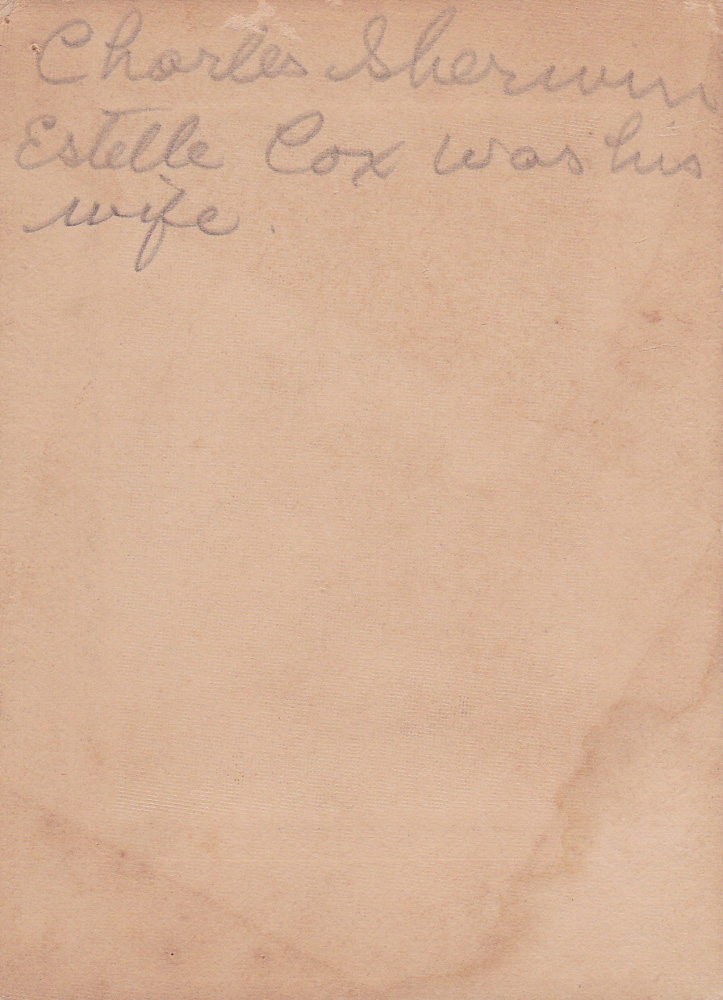 Charles Sherwin
Estelle Cox was his
wife.